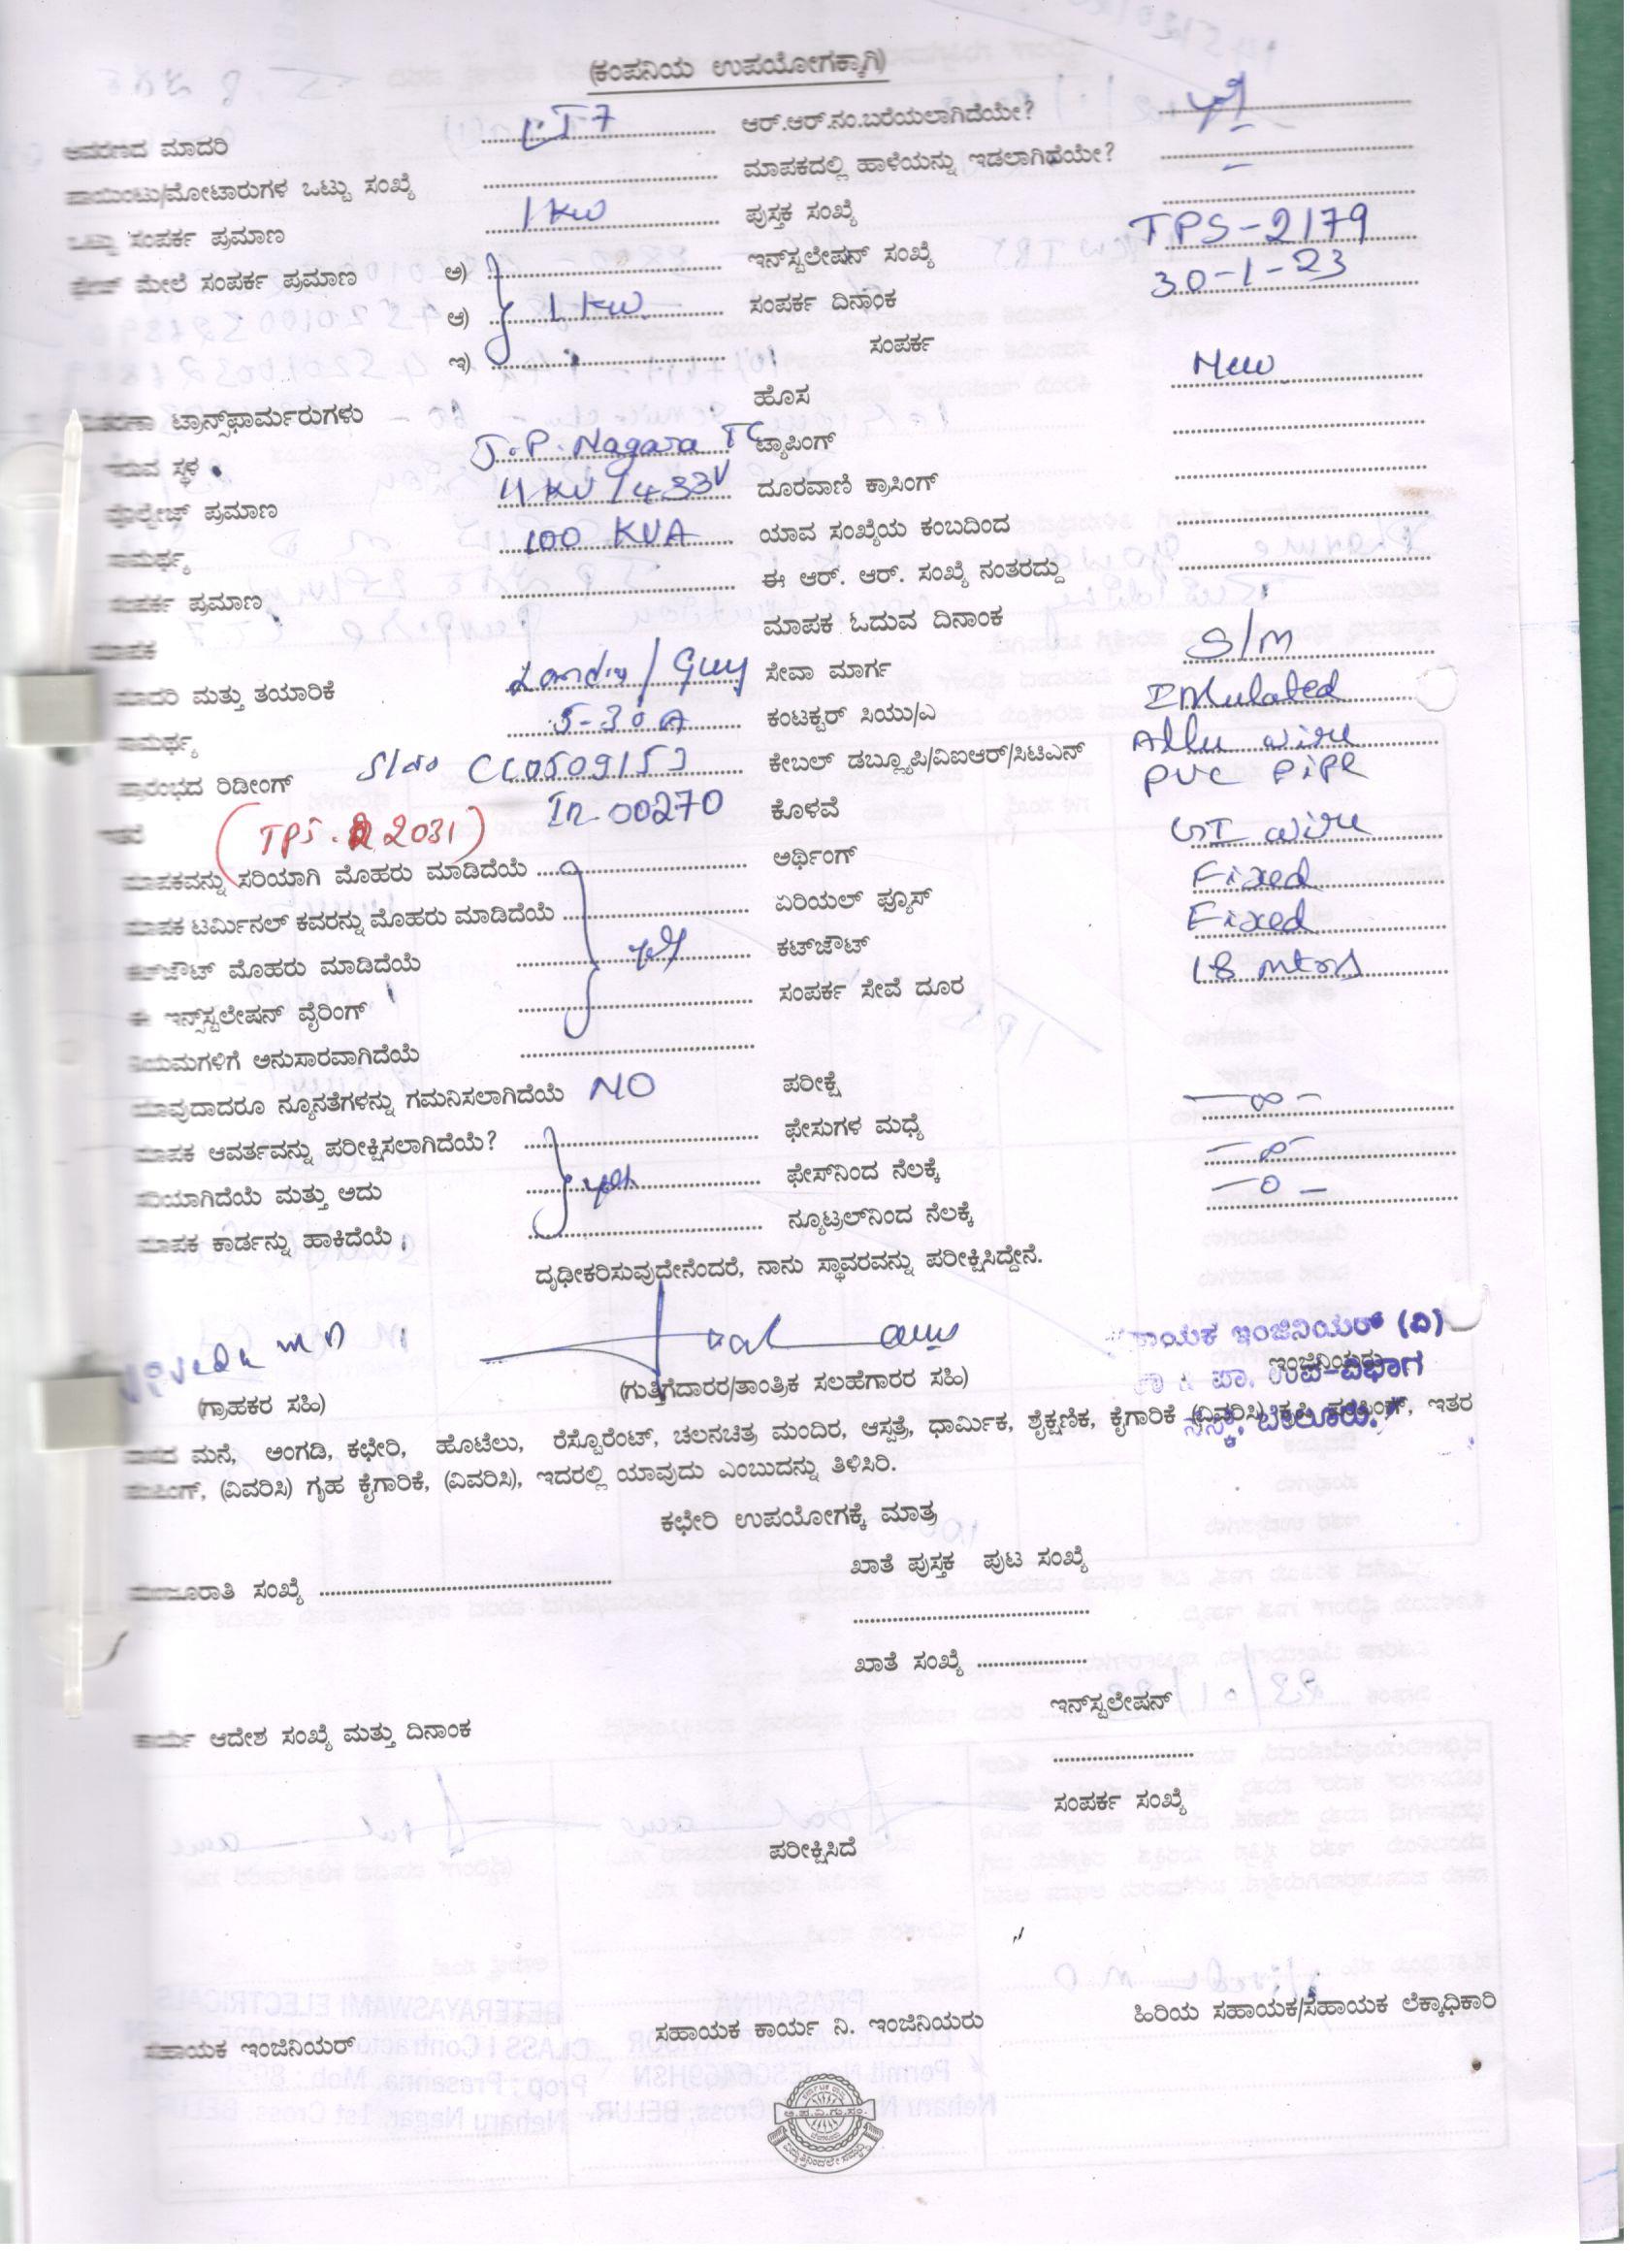 (ಕಂಪನಿಯ ಉಪಯೋಗಕ್ಕಾಗಿ)
ಆವರಣದ ಮಾದರಿ LT7 ಆರ್.ಆರ್.ನಂ.ಬರೆಯಲಾಗಿದೆಯೇ?
ಪಾಯಿಂಟು/ಮೋಟಾರುಗಳ ಒಟ್ಟು ಸಂಖ್ಯೆ ಮಾಪಕದಲ್ಲಿ ಹಾಳೆಯನ್ನು ಇಡಲಾಗಿದೆಯೇ? –
ಒಟ್ಟು ಸಂಪರ್ಕ ಪ್ರಮಾಣ 1 KW ಪುಸ್ತಕ ಸಂಖ್ಯೆ
ಫೇಜ್ ಮೇಲೆ ಸಂಪರ್ಕ ಪ್ರಮಾಣ ಅ) ಇನ್‌ಸ್ಟಲೇಷನ್ ಸಂಖ್ಯೆ TPS-2179
ಆ) 1 KW ಸಂಪರ್ಕ ದಿನಾಂಕ 30-1-23
ಇ) ಸಂಪರ್ಕ
ಹೊಸ New
ವಿತರಣಾ ಟ್ರಾನ್ಸ್‌ಫಾರ್ಮರುಗಳು
ಇರುವ ಸ್ಥಳ J.P. Nagara TC ಟ್ಯಾಪಿಂಗ್
ವೋಲ್ಟೇಜ್ ಪ್ರಮಾಣ 11 KV / 433V ದೂರವಾಣಿ ಕ್ರಾಸಿಂಗ್
ಸಾಮರ್ಥ್ಯ 100 KVA ಯಾವ ಸಂಖ್ಯೆಯ ಕಂಬದಿಂದ
ಸಂಪರ್ಕ ಪ್ರಮಾಣ ಈ ಆರ್. ಆರ್. ಸಂಖ್ಯೆ ನಂತರದ್ದು
ಮಾಪಕ ಮಾಪಕ ಓದುವ ದಿನಾಂಕ
ಮಾದರಿ ಮತ್ತು ತಯಾರಿಕೆ Landis / Guy ಸೇವಾ ಮಾರ್ಗ S/M
ಸಾಮರ್ಥ್ಯ 5-30 A ಕಂಟಕ್ಟರ್ ಸಿಯು/ಎ Insulated
ಪ್ರಾರಂಭದ ರಿಡೀಂಗ್ Sl no ಕೇಬಲ್ ಡಬ್ಲ್ಯೂಪಿ/ವಿಐಆರ್/ಸಿಟಿಎನ್ Allu wire
IR 00270 ಕೊಳವೆ PVC PiPe
(TPS. 2031)
ಮಾಪಕವನ್ನು ಸರಿಯಾಗಿ ಮೊಹರು ಮಾಡಿದೆಯೆ ಅರ್ಥಿಂಗ್ GI wire
ಮಾಪಕ ಟರ್ಮಿನಲ್ ಕವರನ್ನು ಮೊಹರು ಮಾಡಿದೆಯೆ ಏರಿಯಲ್ ಫ್ಯೂಸ್ Fixed
ಕಟ್‌ಔಟ್ ಮೊಹರು ಮಾಡಿದೆಯೆ yes ಕಟ್‌ಔಟ್ Fixed
ಈ ಇನ್ಸ್‌ಸ್ಟಲೇಷನ್ ವೈರಿಂಗ್ ಸಂಪರ್ಕ ಸೇವೆ ದೂರ 18 mtrs
ನಿಯಮಗಳಿಗೆ ಅನುಸಾರವಾಗಿದೆಯೆ
ಯಾವುದಾದರೂ ನ್ಯೂನತೆಗಳನ್ನು ಗಮನಿಸಲಾಗಿದೆಯೆ NO ಪರೀಕ್ಷೆ
ಮಾಪಕ ಆವರ್ತವನ್ನು ಪರೀಕ್ಷಿಸಲಾಗಿದೆಯೆ? ಫೇಸುಗಳ ಮಧ್ಯೆ – ∞ –
ಸರಿಯಾಗಿದೆಯೆ ಮತ್ತು ಅದು yes ಫೇಸ್‌ನಿಂದ ನೆಲಕ್ಕೆ
ಮಾಪಕ ಕಾರ್ಡನ್ನು ಹಾಕಿದೆಯೆ ನ್ಯೂಟ್ರಲ್‌ನಿಂದ ನೆಲಕ್ಕೆ – 0 –
ದೃಢೀಕರಿಸುವುದೇನೆಂದರೆ, ನಾನು ಸ್ಥಾವರವನ್ನು ಪರೀಕ್ಷಿಸಿದ್ದೇನೆ.
ಸಹಾಯಕ ಇಂಜಿನಿಯರ್ (ವಿ)
ಇಂಜಿನಿಯರು
ಪಾ. ಉಪ-ವಿಭಾಗ
(ಗ್ರಾಹಕರ ಸಹಿ) (ಗುತ್ತಿಗೆದಾರರ/ತಾಂತ್ರಿಕ ಸಲಹೆಗಾರರ ಸಹಿ)
ಬೇಲೂರು.
ವಾಸದ ಮನೆ, ಅಂಗಡಿ, ಕಛೇರಿ, ಹೊಟೆಲು, ರೆಸ್ಟೋರೆಂಟ್, ಚಲನಚಿತ್ರ ಮಂದಿರ, ಆಸ್ಪತ್ರೆ, ಧಾರ್ಮಿಕ, ಶೈಕ್ಷಣಿಕ, ಕೈಗಾರಿಕೆ (ವಿವರಿಸಿ) ಕೃಷಿ ಪಂಪಿಂಗ್, ಇತರ
ಪಂಪಿಂಗ್, (ವಿವರಿಸಿ) ಗೃಹ ಕೈಗಾರಿಕೆ, (ವಿವರಿಸಿ), ಇದರಲ್ಲಿ ಯಾವುದು ಎಂಬುದನ್ನು ತಿಳಿಸಿರಿ.
ಕಛೇರಿ ಉಪಯೋಗಕ್ಕೆ ಮಾತ್ರ
ಮಂಜೂರಾತಿ ಸಂಖ್ಯೆ ಖಾತೆ ಪುಸ್ತಕ ಪುಟ ಸಂಖ್ಯೆ
ಖಾತೆ ಸಂಖ್ಯೆ
ಇನ್‌ಸ್ಟಲೇಷನ್
ಕಾರ್ಯ ಆದೇಶ ಸಂಖ್ಯೆ ಮತ್ತು ದಿನಾಂಕ
ಸಂಪರ್ಕ ಸಂಖ್ಯೆ
ಪರೀಕ್ಷಿಸಿದೆ
ಸಹಾಯಕ ಇಂಜಿನಿಯರ್ ಸಹಾಯಕ ಕಾರ್ಯ ನಿ. ಇಂಜಿನಿಯರು ಹಿರಿಯ ಸಹಾಯಕ/ಸಹಾಯಕ ಲೆಕ್ಕಾಧಿಕಾರಿ